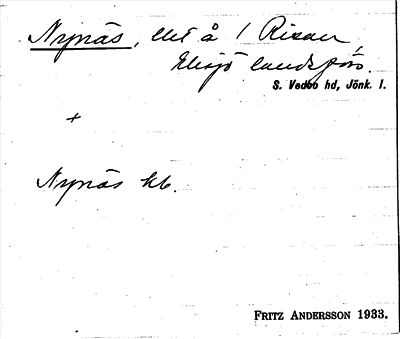 Nynäs, ett å 1 Risan,
Eksjö landsförs.
S. Vedbo hd, Jönk. l.
+
Nynäs kb.
FRITZ ANDERSSON 1933.